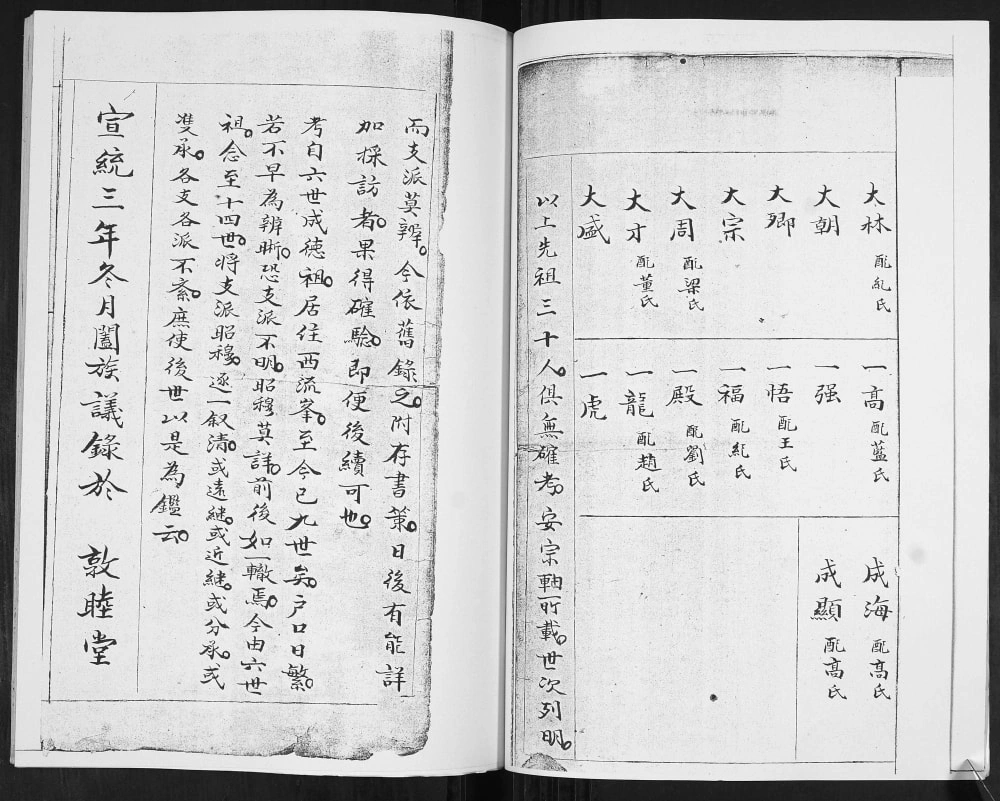 大林 配紀氏
大朝
大卿
大宗
大周 配梁氏
大才 配董氏
大盛
一高 配藍氏
一强
一悟 配王氏
一福 配紀氏
一殿 配劉氏
一龍 配趙氏
一虎
成海 配高氏
成顯 配高氏
以上先祖三十人。俱無確考。安宗軸所載。世次列明。
而支派莫辨。今依舊錄之。附存書策。日後有能詳
加採訪者。果得確驗。即便後續可也。
考自六世成德祖。居住西流峯。至今已九世矣。户口日繁。
若不早為辨晰。恐支派不明。昭穆莫講。前後如一轍焉。今由六世
祖。念至十四世。將支派昭穆。逐一叙清。或遠継。或近継。或分承。或
雙承。各支各派不紊。庶使後世以是為鑑云。
宣統三年冬月闔族議錄於 敦睦堂